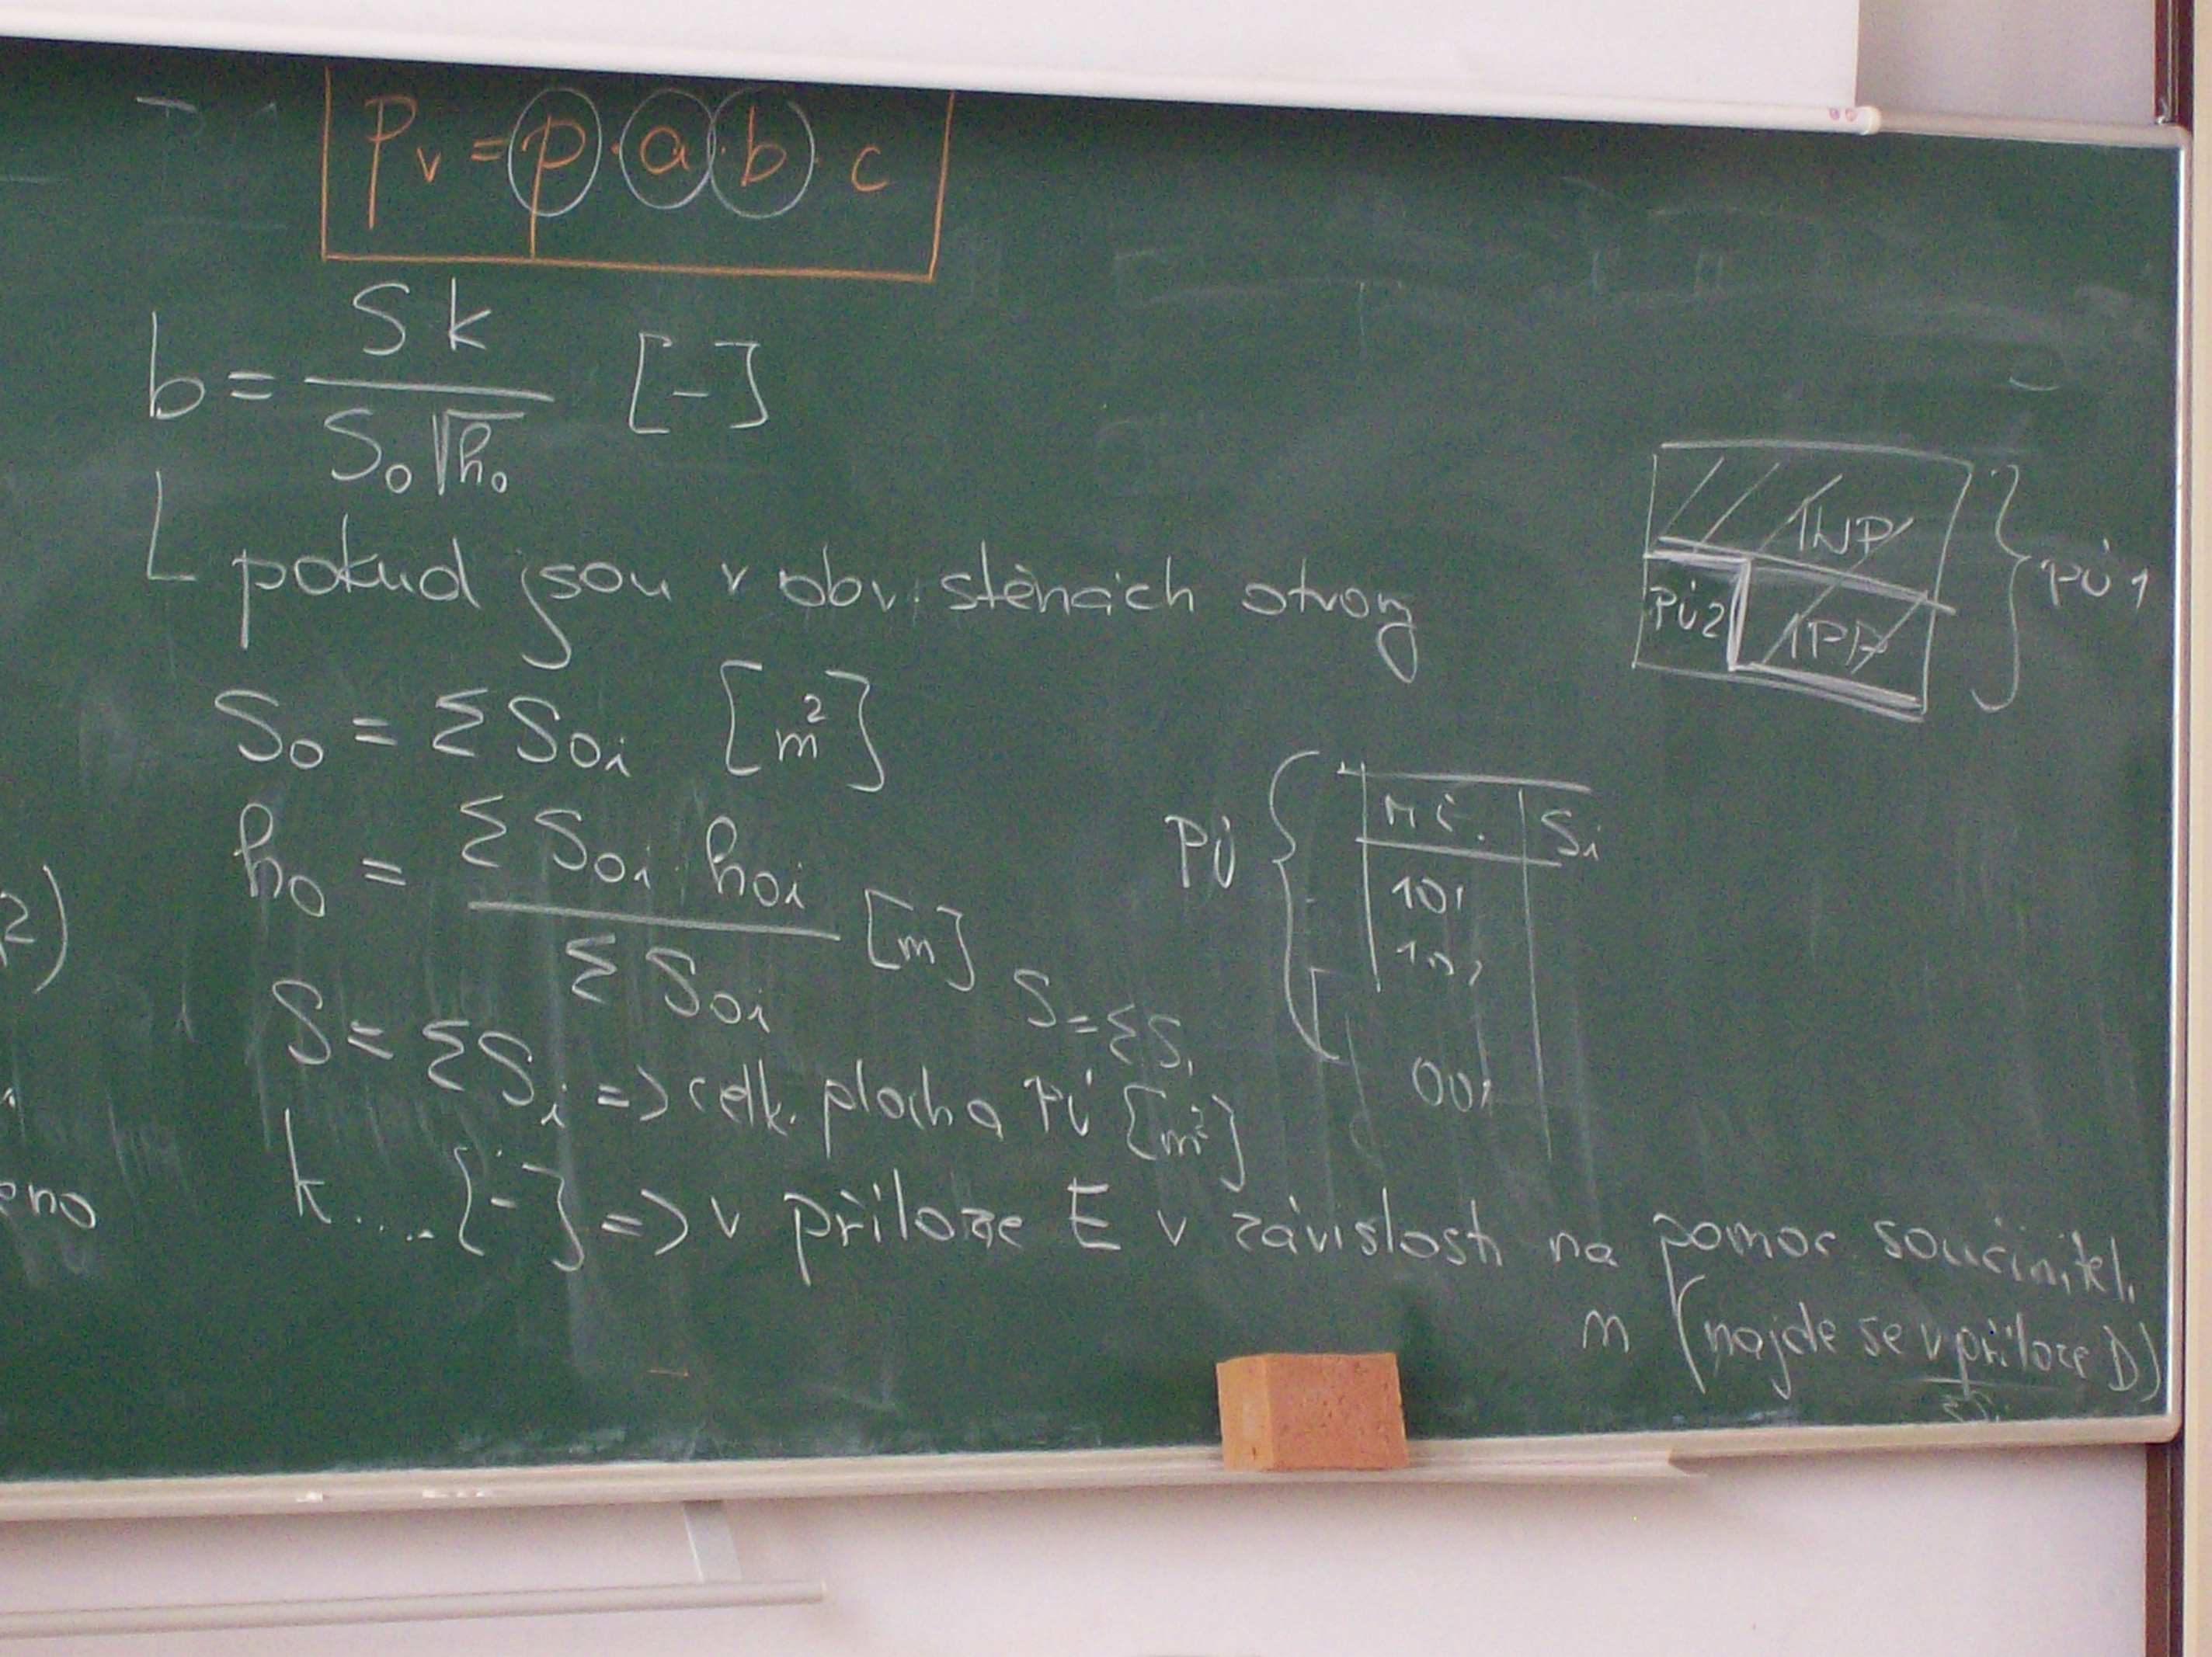 Pv = p · a · b · c
b = S k / So √ho [-]
pokud jsou v obv. stěnách otvory
So = Σ Soi [m²]
ho = Σ Soi · hoi / Σ Soi [m]
S = Σ Si
S = Σ Si => celk. plocha PÚ [m²]
k .... [-] => v příloze E v závislosti na pomoc. součiniteli
m (najde se v příloze D)
1NP
PÚ2
1PP
PÚ 1
PÚ
m č. Si
101
102
001
2)
eno